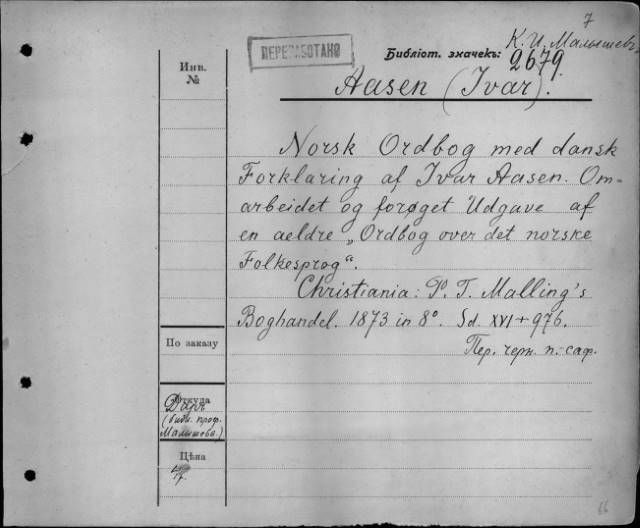 7
К. И. Малышевъ
ПЕРЕРАБОТАНО
Библіот. значекъ:
2679.
Инв.
№
Aasen (Ivar).
Norsk Ordbog med dansk
Forklaring af Ivar Aasen. Om-
arbeidet og forøget Udgave af
en aeldre „Ordbog over det norske
Folkesprog“.
Christiania: P. T. Malling's
Boghandel. 1873 in 8°. Sd. XVI + 976.
По заказу
Пер. черн. п.-саф.
Откуда
Даръ
(библ. проф.
Малышева.)
Цѣна
66